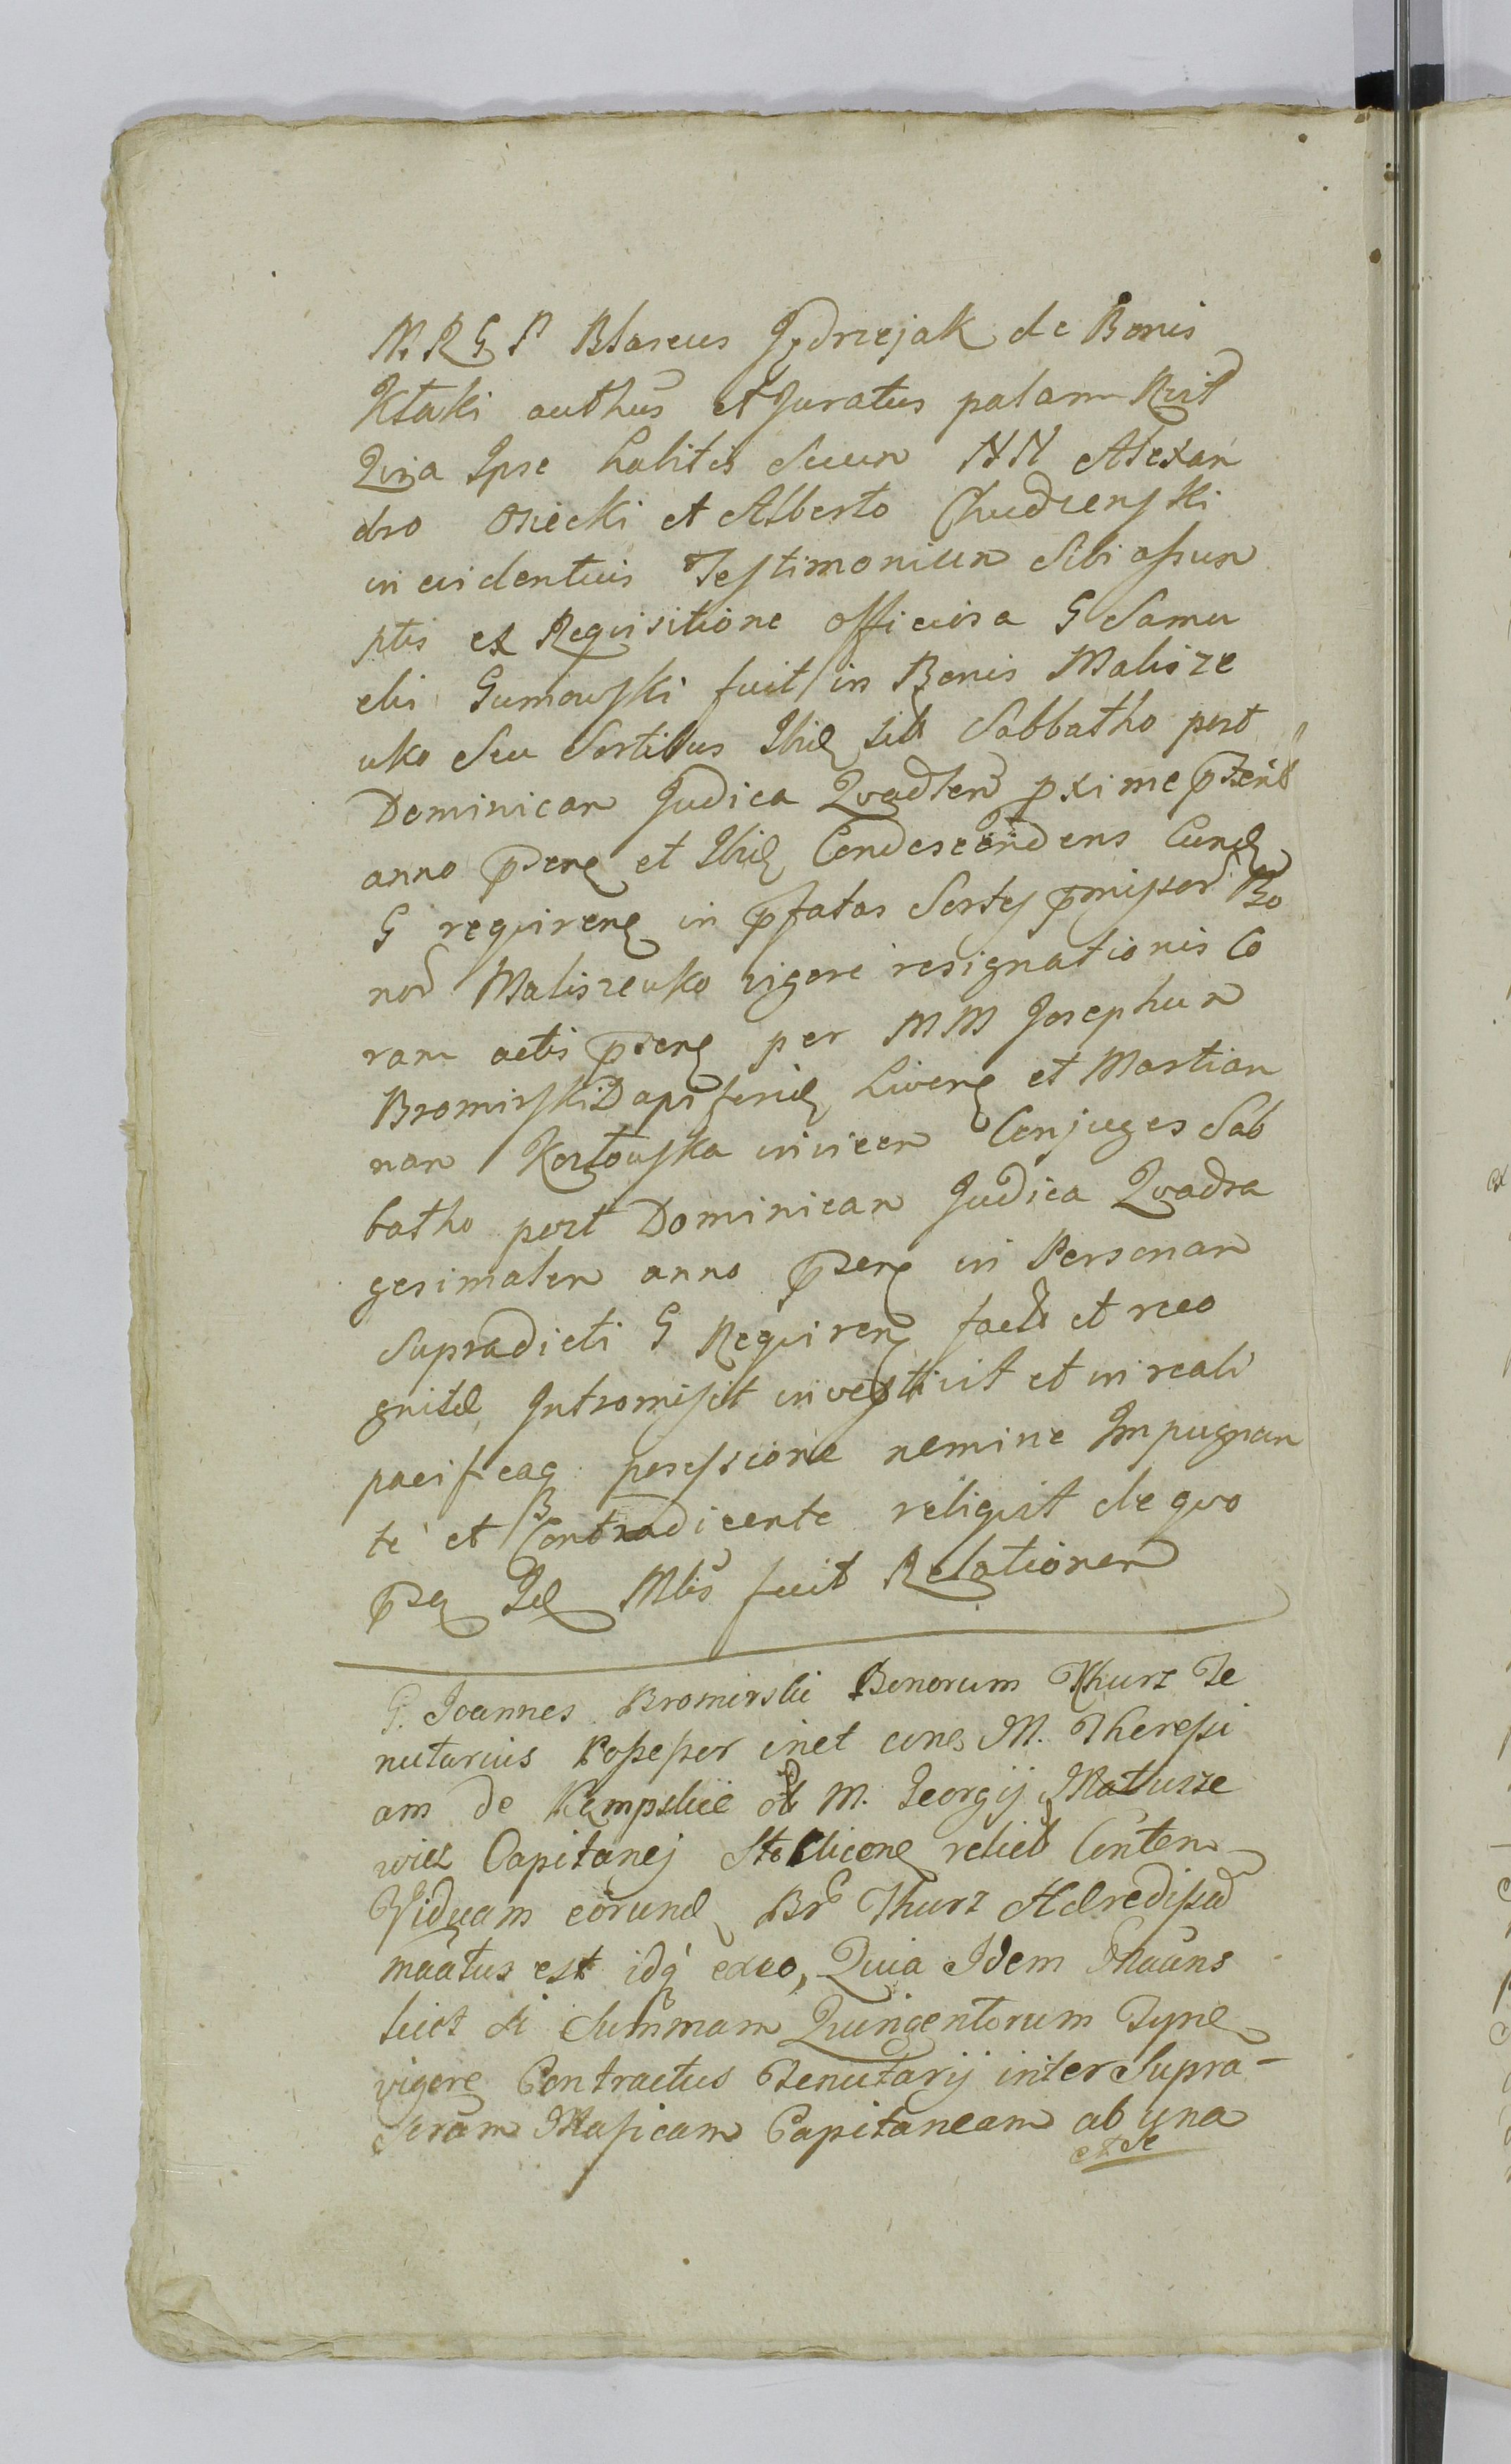 M. R. G. P. Blaseus Jędrzejak de Bonis
Ktaki auths et Juratus palam Rcit
Quia Ipse habitis Secum NN Alexan
dro Osiecki et Alberto Chudzenski
in evidentius Testimonium Sibi assum
ptis ex Requisitione officiosa G Samu
elis Gumowski fuit in Bonis Malisze
wko Seu Sortibus Ibid sitt Sabbatho post
Dominicam Judica Quadlem pxime pterit
anno psenę et Ibid Condescendens Eund
G requirenę in pfatas Sortes pmissor Bo
nor Maliszewko vigore resignationis Co
ram actis psenę per MM Josephum
Bromirski Dapiferid Livenę et Martian
nam Kozłowska invicem Conjuges Sab
batho post Dominicam Judica Quadra
gesimalem anno psenę in Personam
Supradicti G Requirenę factt et reco
gnitd Intromisit investivit et in reali
pacificaq possessione nemine Impugnan
te et Contradicente reliquit de quo
psę Id Mlis fecit Relationem
G. Joannes Bromirski Bonorum Thurz Te
nutarius Possessor inet cones M. Theresi
am de Kempskie ol M. Georgij Matusze
wicz Capitanej Stoklicenę relict Conten
Viduam eorund Br Thurz Hæredissad
maatus est idq exeo, Quia Idem Maans
licet Summam Quingentorum Tynf
vigore Contractus Tenutarij inter Supra-
scram Mascam Capitaneam ab una
et se